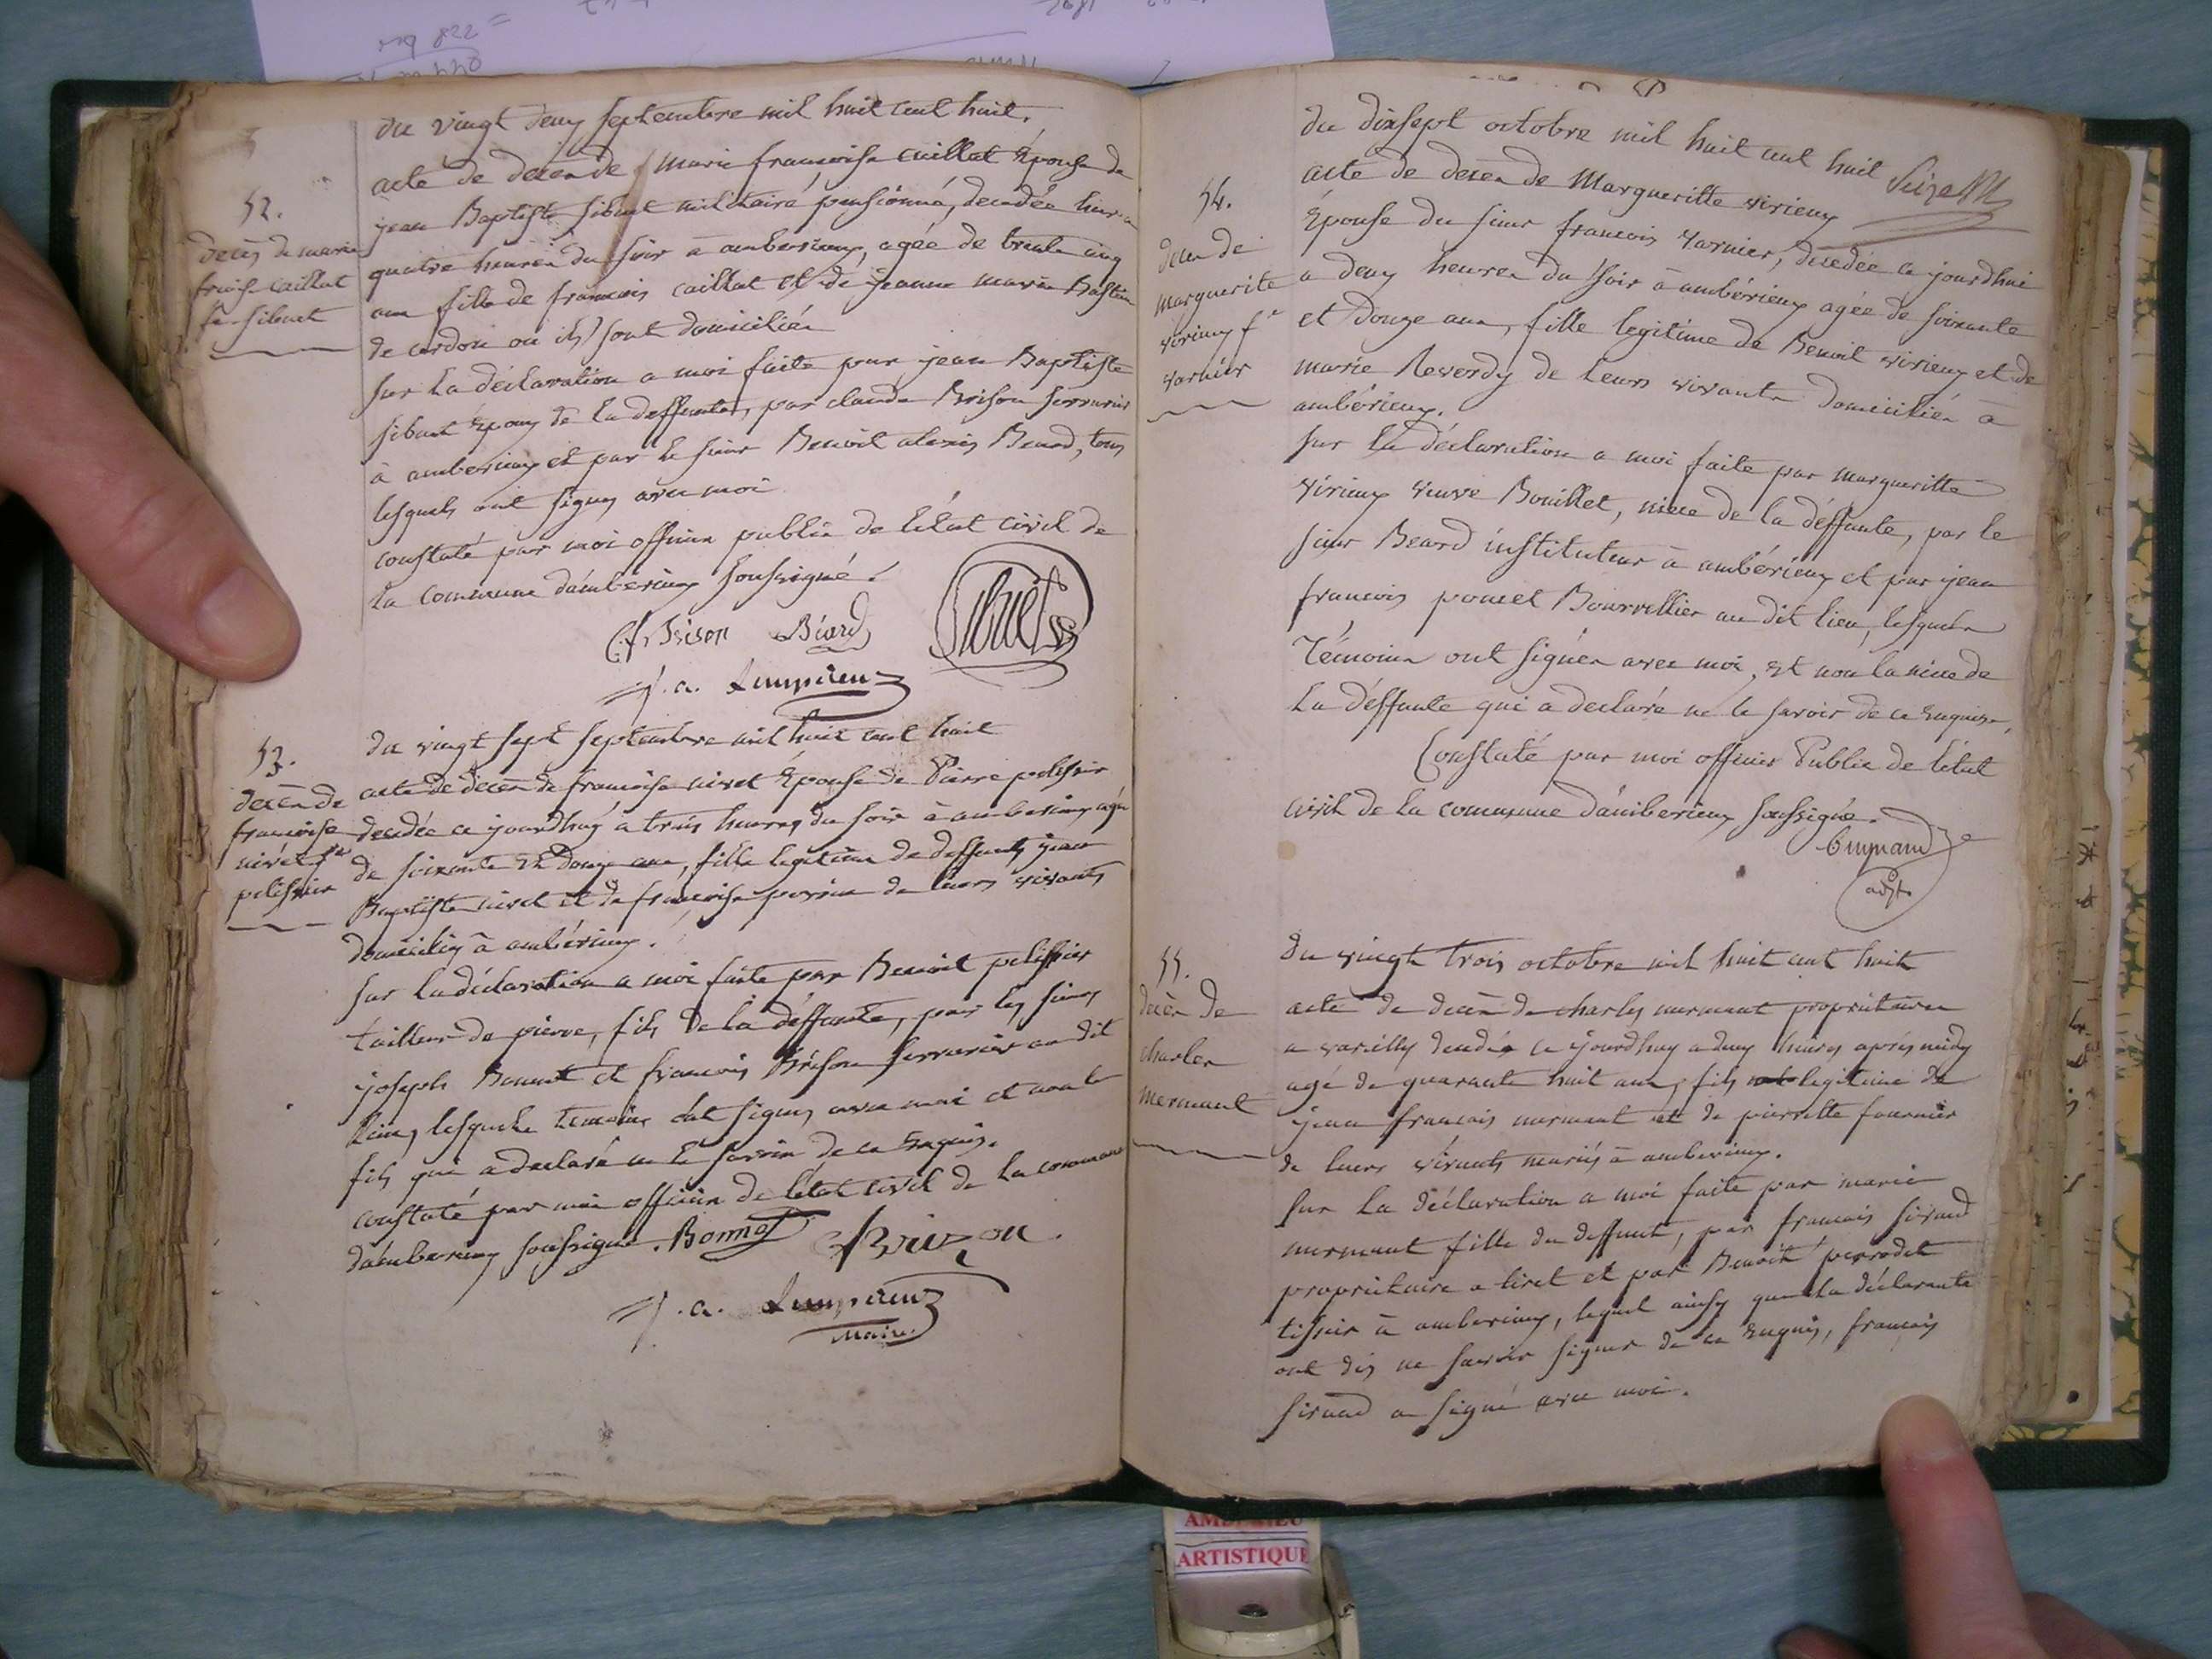 du vingt deux septembre mil huit cent huit.
52.
decès de marie
fcoise caillat
fe sibuet
acte de decèn de marie françoise caillat Épouse de
jean Baptiste sibuet militaire pensionné, decedée hier a
quatre heures du soir à amberieux, agée de trente cinq
ans fille de francois caillat et de jeanne marie
de cerdon où ils sont domiciliés
sur la déclaration a moi faite par jean Baptiste
sibuet Epoux de la deffunte, par claude Brison serrurier
à amberieux et par le sieur Benoit alexis Beard, tous
lesquels ont signés avec moi
constaté par moi officier public de létat civil de
la commune d'amberieux soussigné.
Cl. Brison Béard Sibuet
j. a.
53.
decèn de
francoise
nivet fe
pelissier
du vingt sept septembre mil huit cent huit
acte de decèn de francoise nivet Épouse de Pierre pelissier
decedée ce jourdhuy a trois heures du soir à amberieux agée
de soixante et douze ans, fille legitime de deffunts jean
Baptiste nivet et de francoise perrin de leurs vivants
domiciliés à ambérieux.
sur la déclaration a moi faite par Benoit pelissier
tailleur de pierre, fils de la deffunte, par les sieurs
joseph Bonnet et francois Brison serrurier au dit
lieu, lesquels temoins ont signés avec moi et non le
fils qui a declaré ne le savoir de ce Enquis.
constaté par moi officier de létat civil de la commune
d'amberieux soussigné. Bonnet Brizon.
j. a.
Maire.
du dixsept octobre mil huit cent huit
54.
decen de
marguerite
virieux fe
varnier
acte de decèn de Margueritte virieux
Épouse du sieur francois varnier, decedée ce jourdhui
a deux heures du soir à ambérieux agée de soixante
et douze ans, fille legitime de Benoit virieux et de
marie Reverdy de leurs vivants domiciliés à
ambérieux.
sur la déclaration a moi faite par margueritte
virieux veuve Bouillet, niece de la déffunte, par le
sieur Beard instituteur à ambérieux et par jean
francois poncet Bourrellier au dit lieu, lesquels
Témoins ont signés avec moi, et non la niece de
la déffunte qui a declaré ne le savoir de ce Enquise,
Constaté par moi officier Public de létat
civil de la commune d'amberieux soussigné.
adjt
55.
decèn de
charles
mermant
Du vingt trois octobre mil huit cent huit
acte de decèn de charles mermant proprietaire
a vareilles decedé ce jourdhuy a deux heures après midy
agé de quarante huit ans, fils legitime de
jean francois mermant et de pierrette fournier
de leurs vivants mariés à amberieux.
sur la déclaration a moi faite par marie
mermant fille du deffunt, par francois siraud
proprietaire a tiret et par Benoit perrodet
tissier à amberieux, lequel ainsy que la déclarante
ont dis ne savoir signer de ce Enquis, francois
siraud a signé avec moi.
ARTISTIQUE